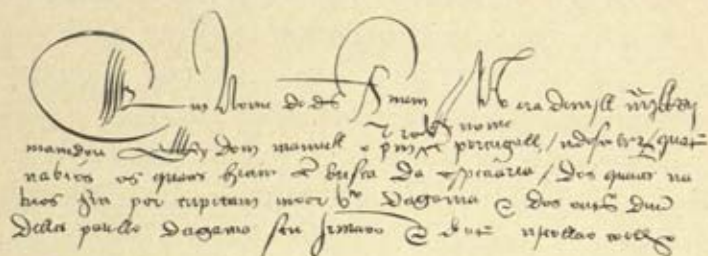 Em Nome de ds Amem // Na era de mill iiij lRbij
mandou Ellrey dom manuell o pmro deste nome em portugall / a descobrir quatro
nabios os quaes hiam em busca da especiaria / dos quaees na
bios hia por capitam moor Vco dagama e dos outros duu
delles paullo dagama seu Irmaoo e do outro njcollao coelho